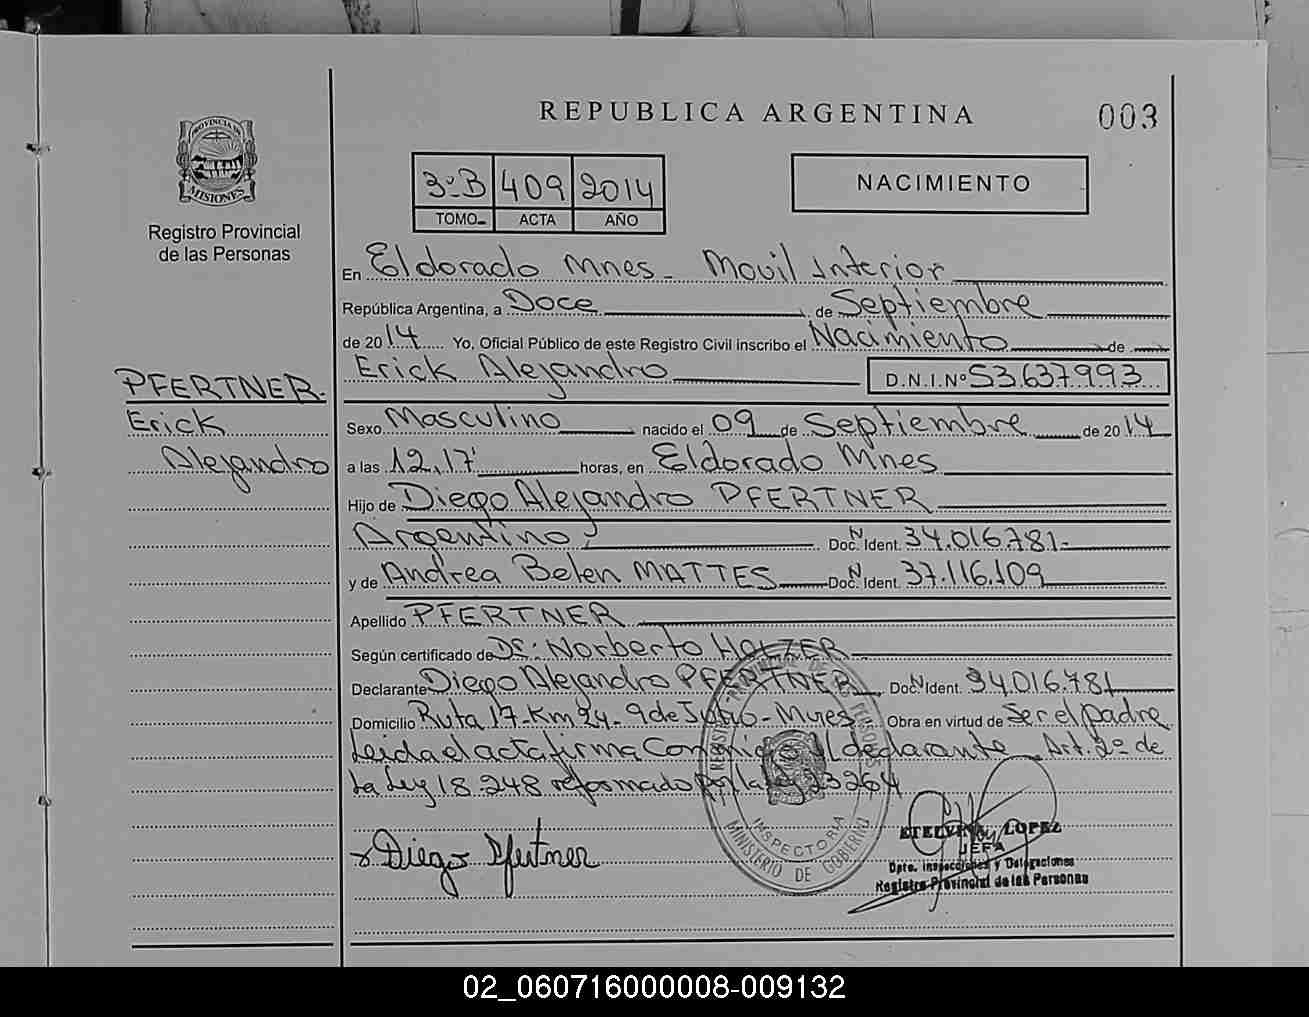 REPUBLICA ARGENTINA
003
PROVINCIA DE
MISIONES
Registro Provincial
de las Personas
3º B 409 2014
TOMO ACTA AÑO
NACIMIENTO
En Eldorado Mnes - Movil Interior
República Argentina, a Doce de Septiembre
de 2014 Yo, Oficial Público de este Registro Civil inscribo el Nacimiento de
Erick Alejandro D.N.I. Nº 53.637.993
PFERTNER
Erick
Alejandro
Sexo Masculino nacido el 09 de Septiembre de 2014
a las 12,17' horas, en Eldorado Mnes
Hijo de Diego Alejandro PFERTNER
Argentino Doc. N Ident. 34.016.781-
y de Andrea Belen MATTES Doc. N Ident. 37.116.109
Apellido PFERTNER
Según certificado de Dr: Norberto HOLZER
Declarante Diego Alejandro PFERTNER Doc. N Ident. 34.016.781
Domicilio Ruta 17-Km 24-9 de Julio-Mnes Obra en virtud de Ser el padre
Leida el acta firma Conmigo el declarante Art. 2º de
La Ley 18.248 reformado por la Ley 23264
Diego Pfertner
INSPECTORIA
MINISTERIO DE GOBIERNO
ETELVINA LOPEZ
JEFA
Dpto. Inspecciones y Delegaciones
Registro Provincial de las Personas
02_060716000008-009132